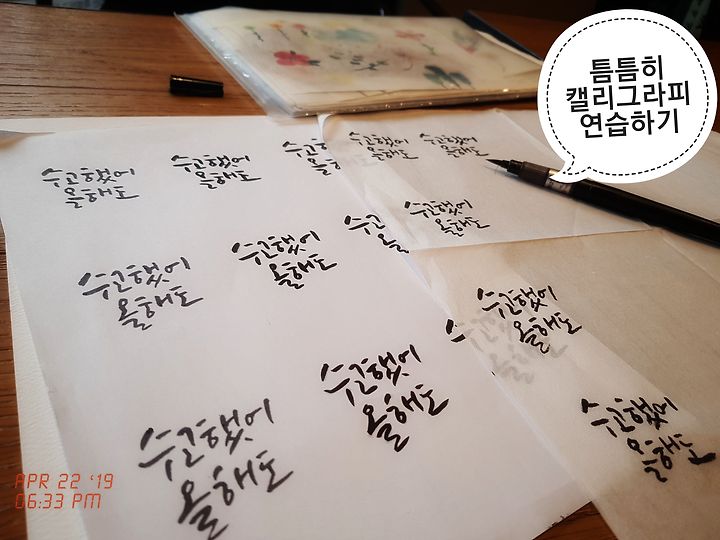 틈틈히
캘리그라피
연습하기
수고했어
올해도
수고했어
올해도
수고
올해도
수고했어
올해도
수고했어
올해도
수고했어
올해도
수고했어
올해도
수고했어
올해도
수고
올
수고했어
올해도
수고했어
올해도
수고했어
올해도
수고했어
올해도
APR 22 '19
06:33 PM